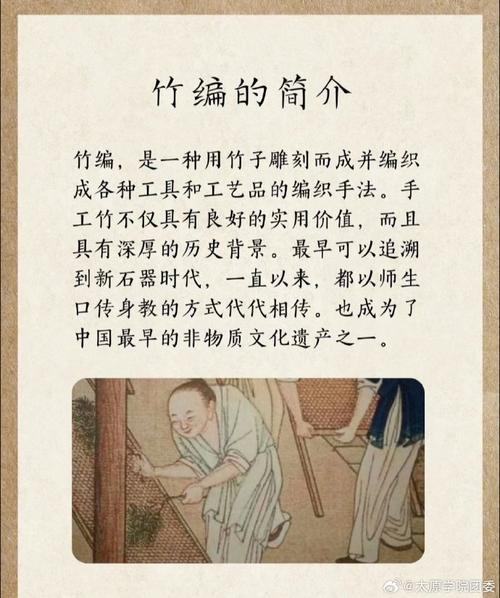 竹编的简介
竹编，是一种用竹子雕刻而成并编织
成各种工具和工艺品的编织手法。手
工竹不仅具有良好的实用价值，而且
具有深厚的历史背景。最早可以追溯
到新石器时代，一直以来，都以师生
口传身教的方式代代相传。也成为了
中国最早的非物质文化遗产之一。
@太原学院团委